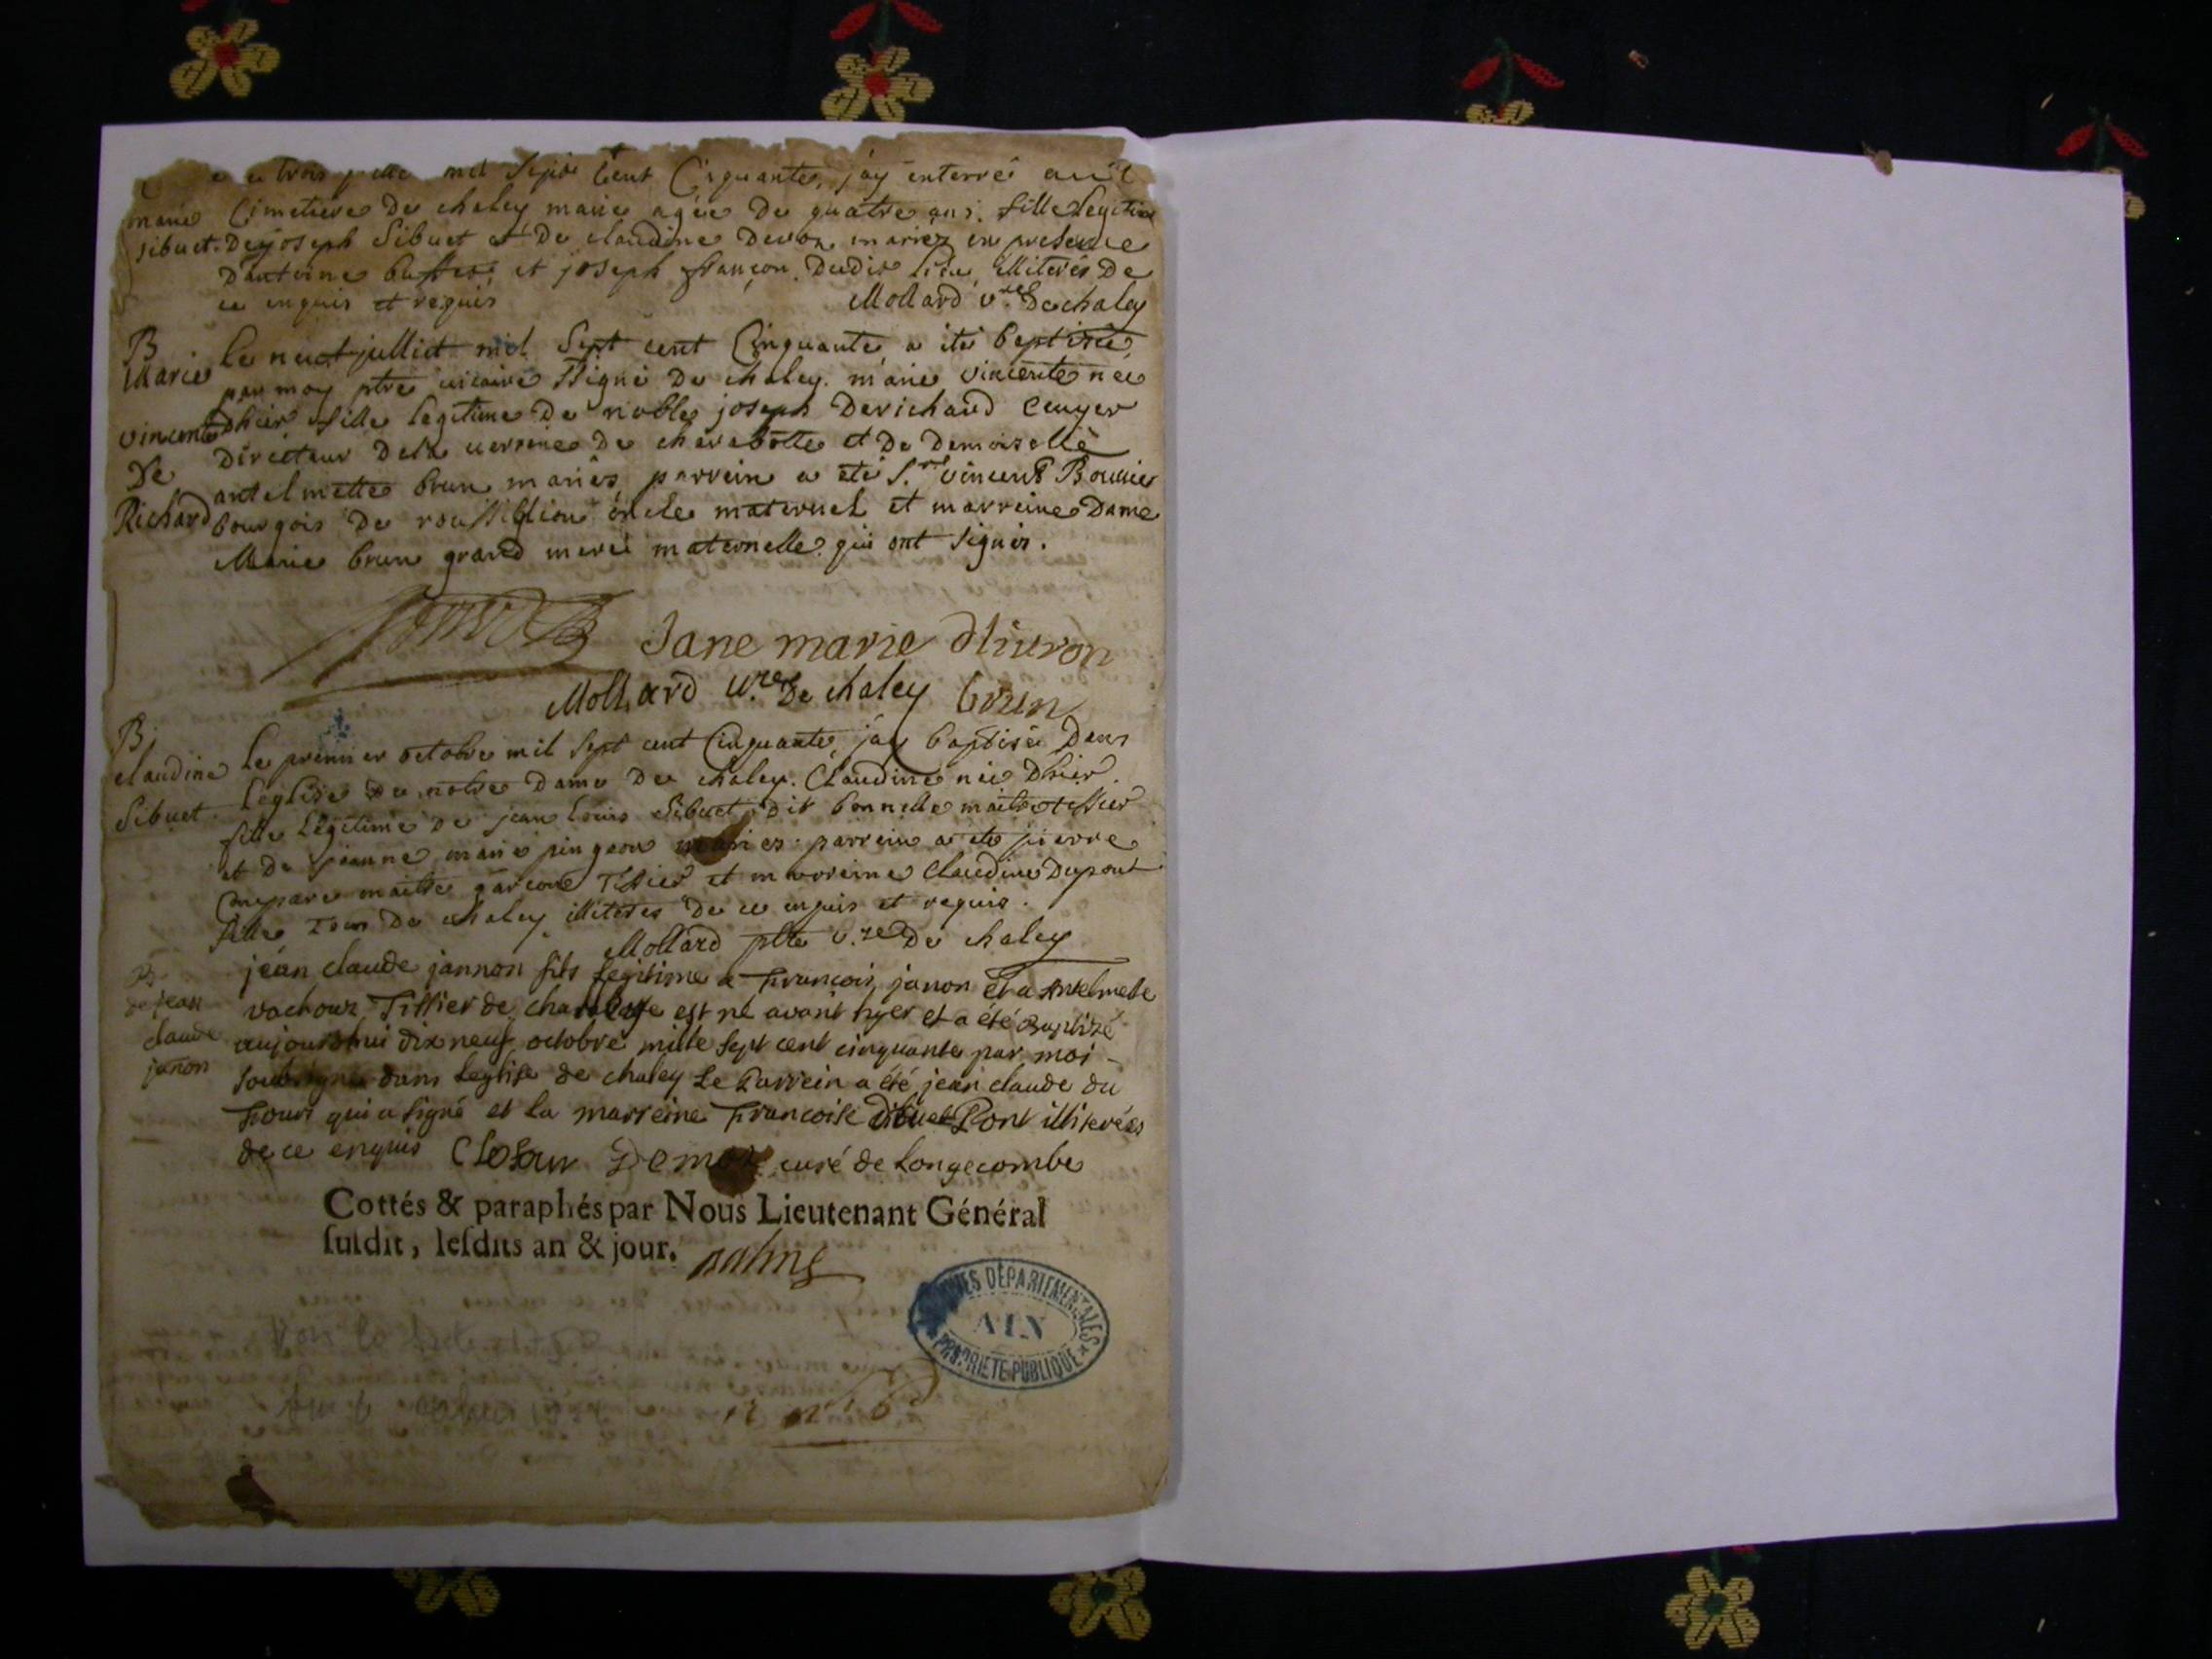 trois mil Sept Cent Cinquante, jay enterré au
marie Cimetiere De chaley marie agée De quatre ans. fille legitime
sibuet. De joseph Sibuet et De claudine Devon mariez en presence
D'antoine et joseph françon Dudit lieu illiterés De
ce enquis et requis Mollard v.re De chaley
B Le neuf julliet mil Sept cent Cinquante a été baptisée
Marie par moy ptre vicaire ssigné De chaley. marie vincente née
vincente Dhier fille legitime De noble joseph Derichard Ecuyer
De Directeur Dela verrerie De charabotte et De Demoiselle
antelmette brun mariés, parrein a été S.r vincent Bouvier
Richard bourgois De roussillion oncle maternel et marreine Dame
Marie brun grand mere maternelle qui ont signés.
Jane marie
Mollard v.re De chaley brun
B.
claudine Le premier octobre mil sept cent Cinquante, jay baptisée Dans
Leglise De notre Dame De chaley. Claudine née Dhier.
Sibuet. fille Legitime De jean Louis Sibuet dit bonnelle maitre tissier
et De jeanne marie pingeon mariés: parrein a été pierre
maitre garçon Tissier et marreine Claudine Dupont
fille Tous De chaley illiterés De ce enquis et requis.
Mollard ptre v.re De chaley
B. jean claude jannon fils legitime a françois janon et a Antelmette
de jean vachoux Tissier de est né avant hyer et a été Baptizé
claude aujourdhui dix neuf octobre mille sept cent cinquante par moi
janon soubsigné dans Leglise de chaley Le Parrein a été jean claude du
four qui a signé et la marreine françoise illiterées
de ce enquis curé de Longecombe
Cottés & paraphés par Nous Lieutenant Général
ſuſdit, leſdits an & jour.
ARCHIVES DÉPARTEMENTALES
AIN
PROPRIETE PUBLIQUE